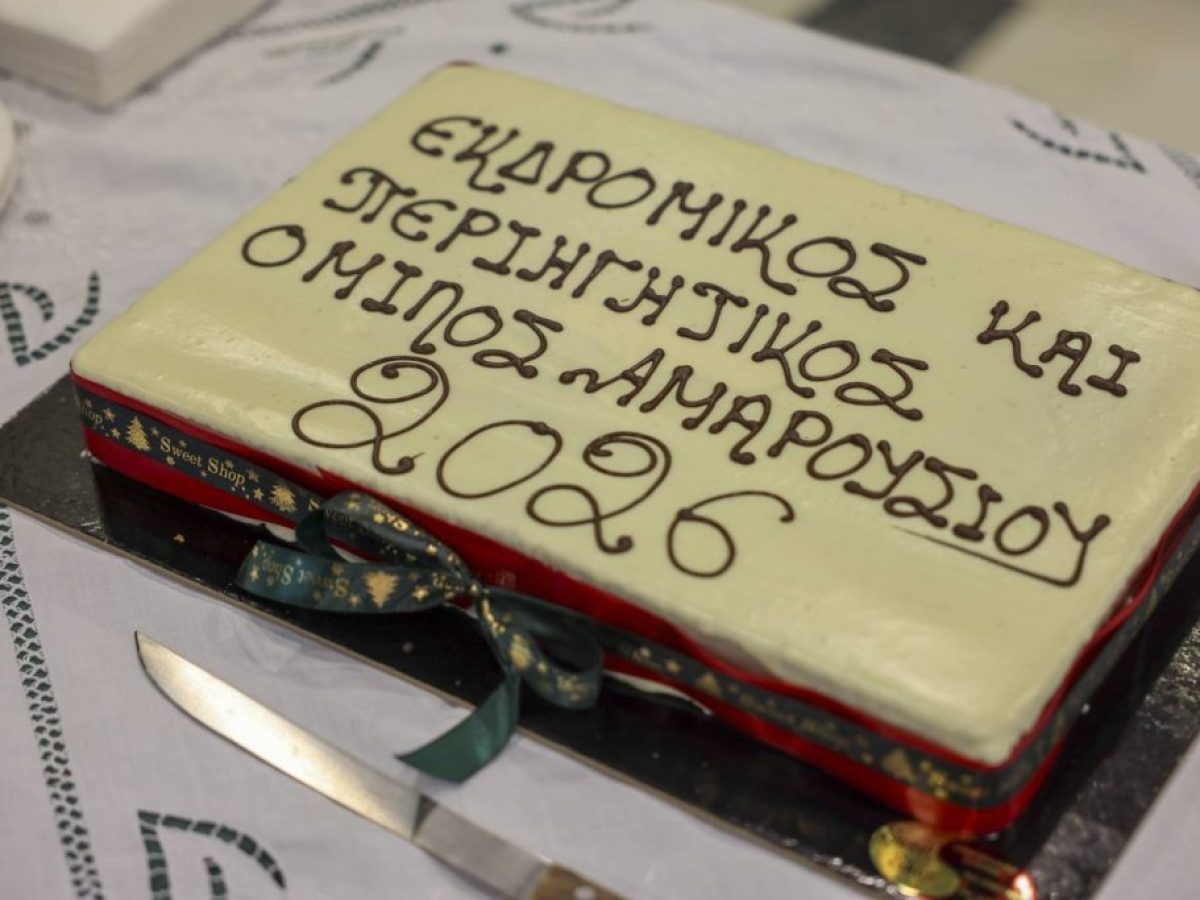 ΕΚΔΡΟΜΙΚΟΣ ΚΑΙ
ΠΕΡΙΗΓΗΤΙΚΟΣ
ΟΜΙΛΟΣ ΑΜΑΡΟΥΣΙΟΥ
2026
Shop
Sweet Shop
Sweet Shop